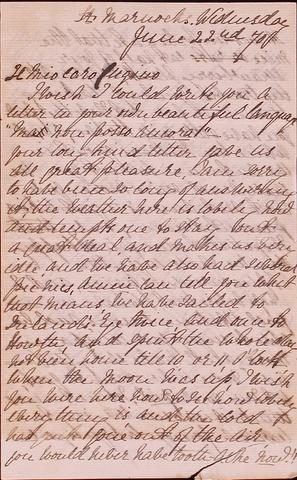 St Marnocks. Wednesday
June 22nd
Il mio caro
I wish I could write you a
letter in your own beautiful language
"Ma Non posso ancora" –
your long kind letter gave us
all great pleasure, I am sorry
to have been so long of answering
it, the weather here is lovely now
and tempts one to stay out
a great deal, and makes us very
idle and we have also had several
picnics, can tell you what
that means. We have sailed to
Ireland's Eye twice, and once to
Howth and spent the whole day
not home till 10 or 11 o'clock
when the moon was up, I wish
you were here now to see how lovely
everything is and the cold
has quite gone out of the air
you would never have tooth ache now!!